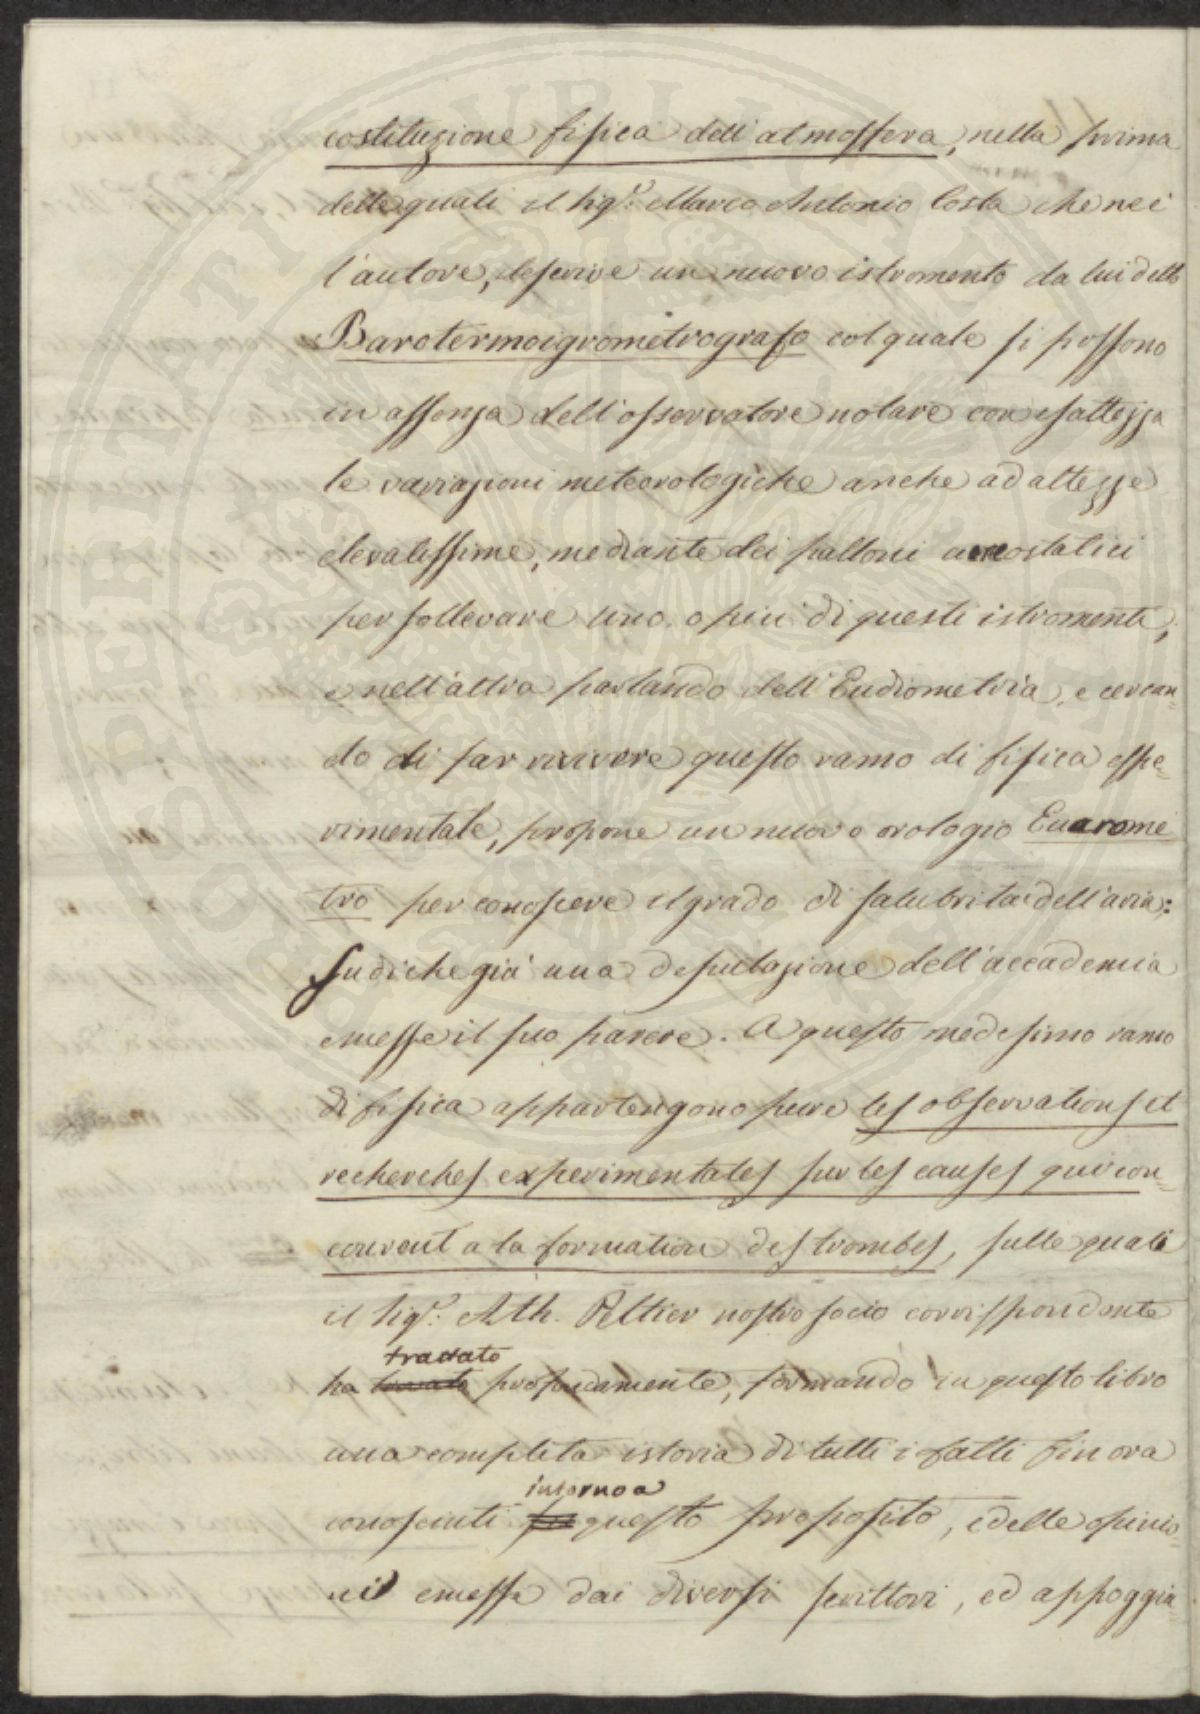 costituzione fisica dell'atmosfera, nella prima
delle quali il Sigr. Marco Antonio Costa che n'è
l'autore, descrive un nuovo istromento da lui detto
Barotermoigrometrografo col quale si possono
in assenza dell'osservatore notare con esattezza
le variazioni meteorologiche anche ad altezze
elevatissime, mediante dei palloni aereostatici
per sollevare uno o più di questi istromenti,
e nell'altra parlando dell'Eudiometria, e cercan=
do di far rivivere questo ramo di fisica espe=
rimentale, propone un nuovo orologio Euarome
tro per conoscere il grado di salubrità dell'aria:
su di che già una deputazione dell'accademia
emesse il suo parere. A questo medesimo ramo
di fisica appartengono pure les observations et
recherches experimentales sur les causes qui con=
courent a la formation des trombes, sulle quali
il Sigr. Ath. Peltier nostro socio corrispondente
trattato
ha profondamente, formando in questo libro
una completa istoria di tutti i fatti fin ora
intorno a
conosciuti questo proposito, e delle opinio=
ni emesse dai diversi scrittori, ed appoggia
PROSPERITATI PUBLICAE AUGENDAE